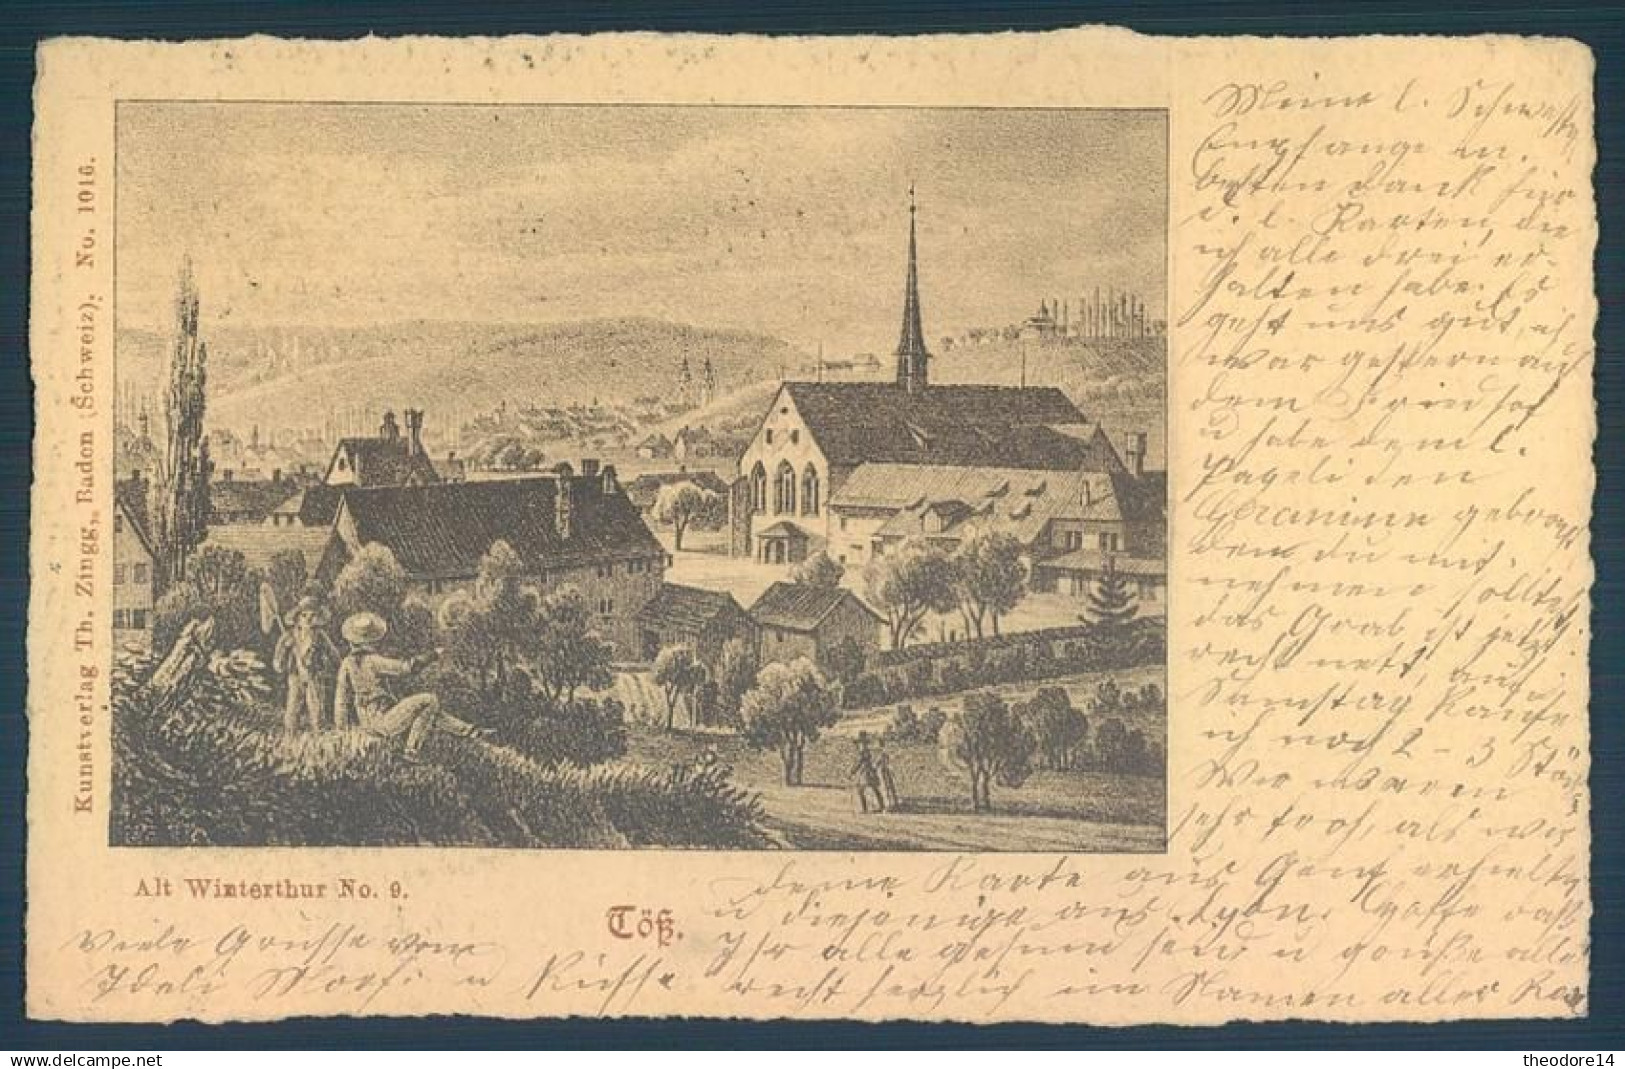 Kunstverlag Th. Zingg, Baden (Schweiz). No. 1016.
Meine l. Schwester
Empfange m.
besten Dank für
d. l. Karten, die
ich alle drei er-
halten habe. Es
geht uns gut, ich
war gestern auf
dem Friedhof
u habe dem l.
den
Geranium gebracht
den du mit
nehmen solltest
das Grab ist jetzt
recht nett, auf
Samstag kaufe
ich noch 2 - 3
Wir waren
sehr froh, als wir
deine Karte aus Genf erhielten
u diejenige aus Lyon. Hoffe dass
Ihr alle gesund seid u grüße alle
recht herzlich im Namen aller
Alt Winterthur No. 9.
Töß.
Viele Grüsse von
Ideli u Küsse
theodore14